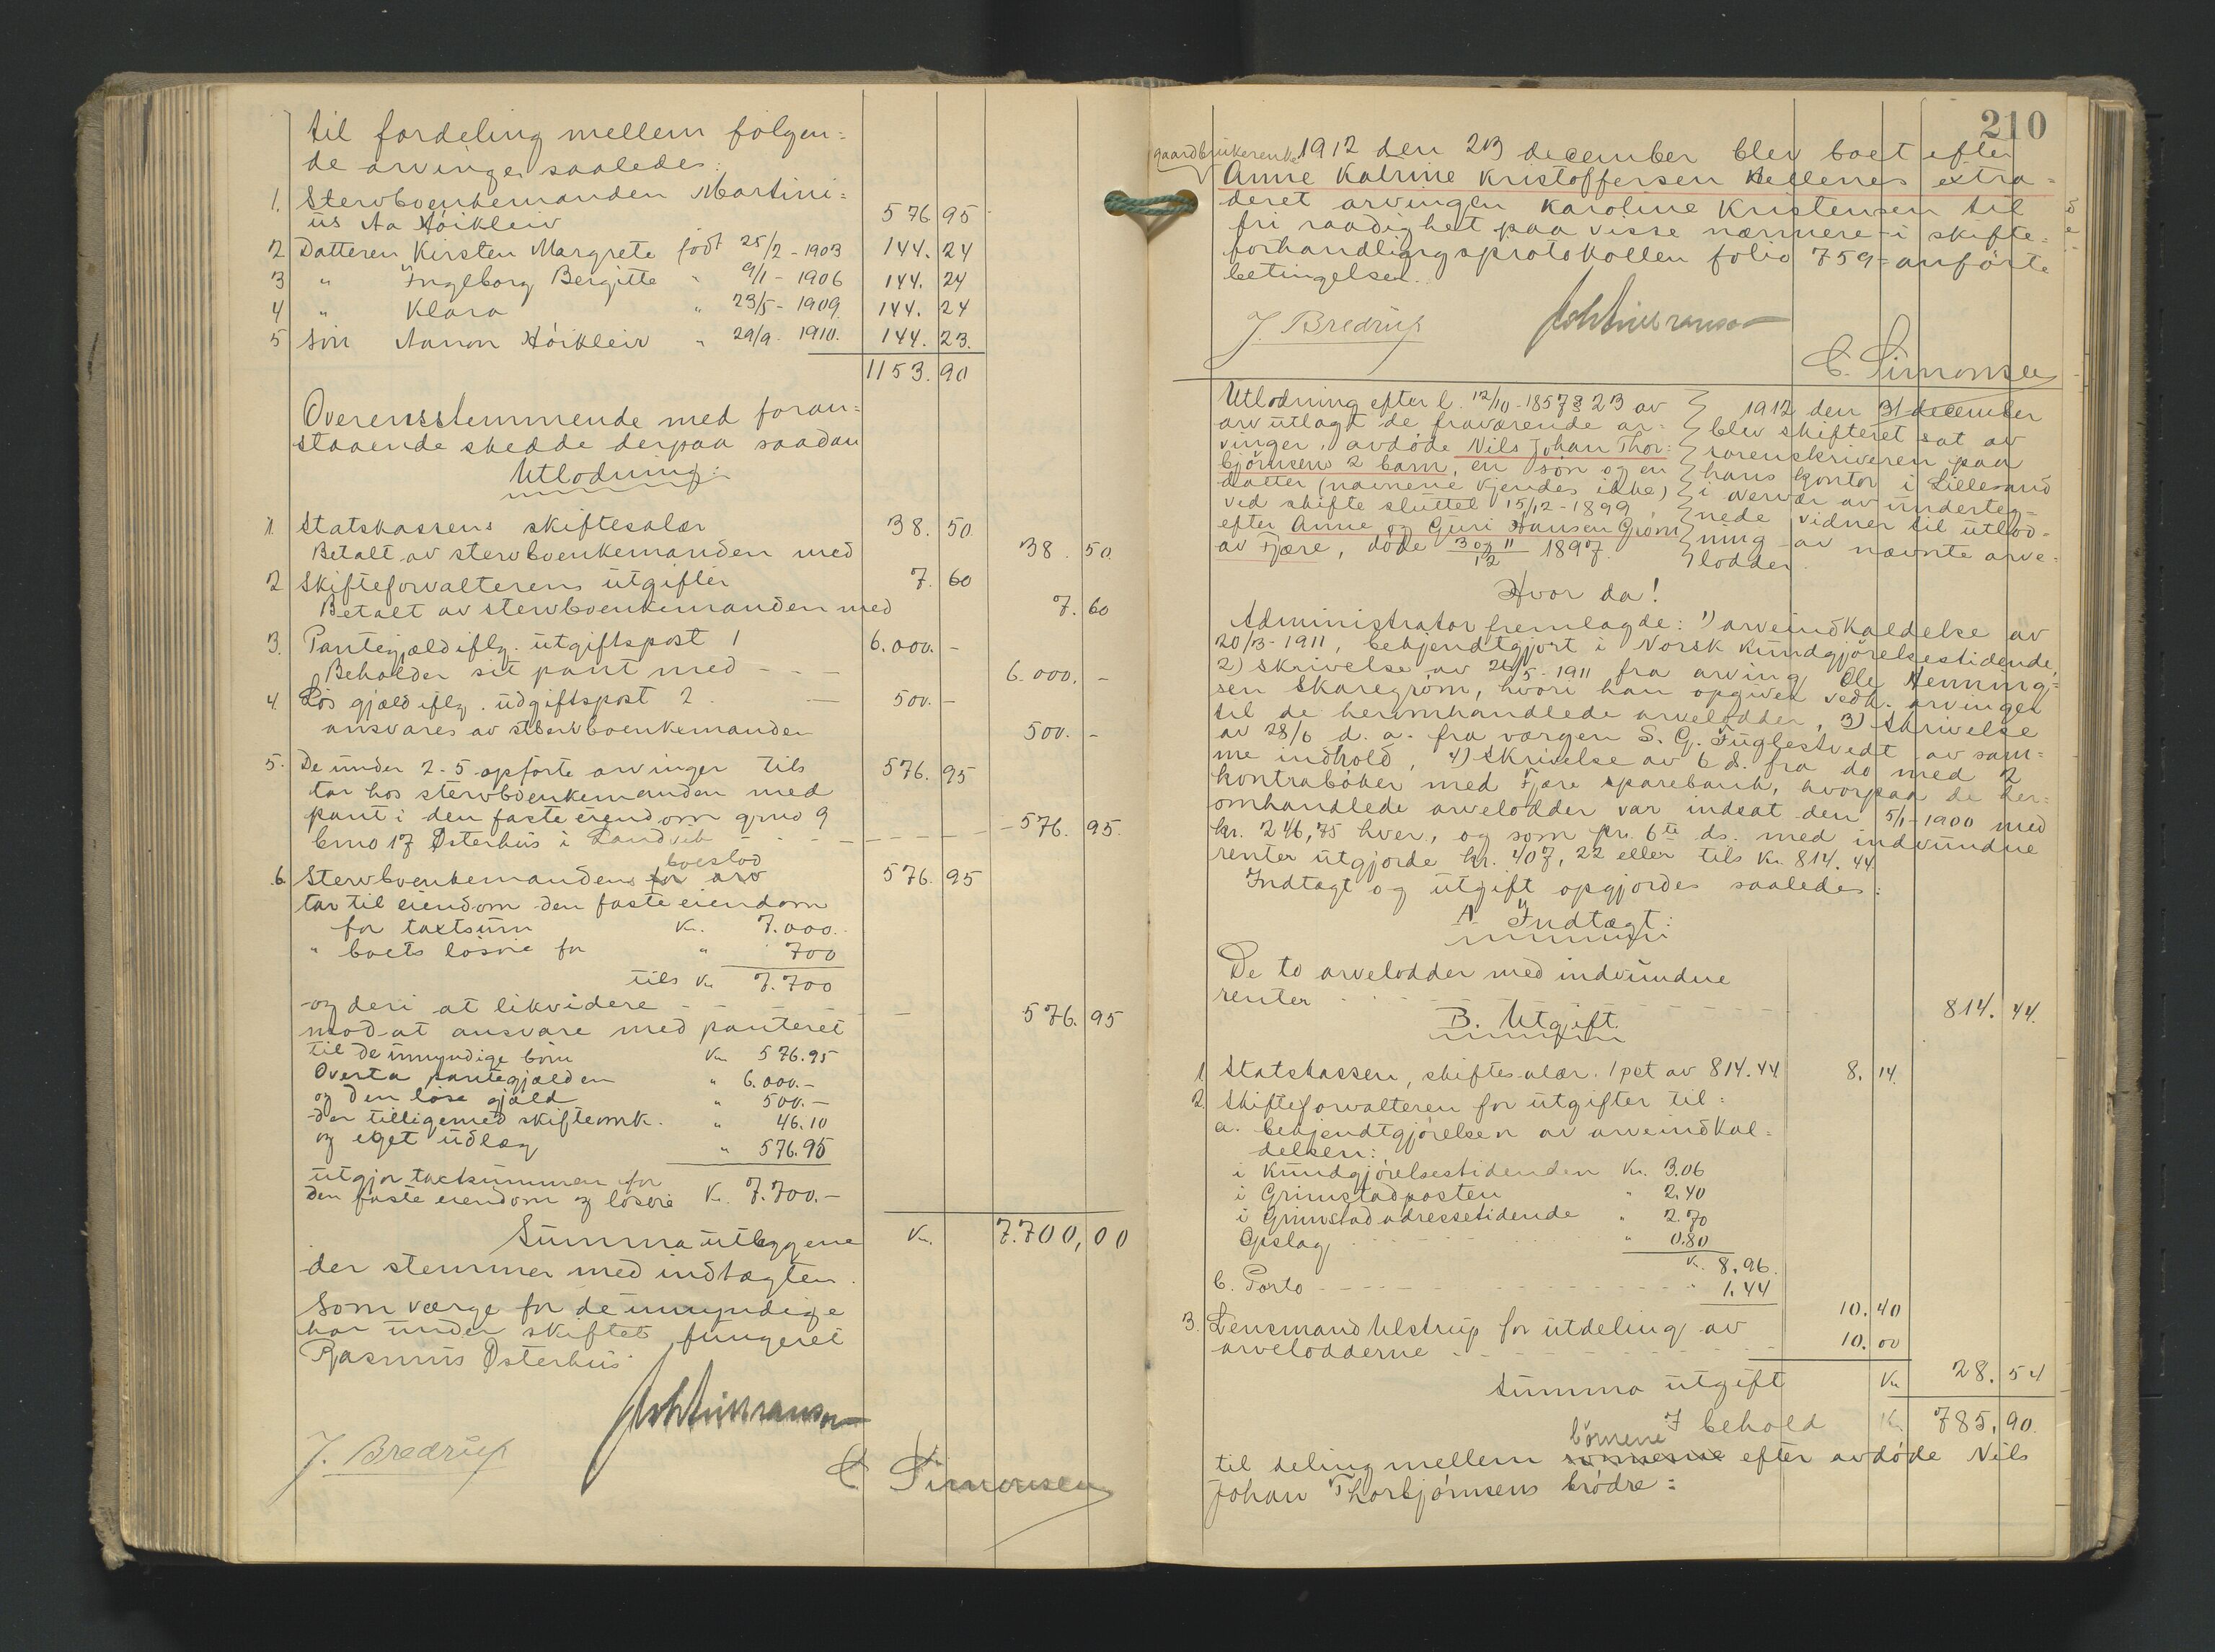 til fordeling mellem følgen=
de arvinger saaledes:
1. Stervboenkemanden Martini=
us Aa Høikleiv 576.95
2 Datteren Kirsten Margrete født 25/2-1903 144.24
3 " Ingeborg Bergitte " 9/1-1906 144.24
4 " Klara " 23/5-1909 144.24
5 søn Aanon Høikleiv " 29/9. 1910. 144.23.
1153.90
Overensstemmende med foran=
staaende skedde derpaa saadan
Utlodning:
1. Statskassens skiftesalær 38.50
Betalt av stervboenkemanden med 38.50.
2 Skifteforvalterens utgifter 7.60
Betalt av stervboenkemanden med 7.60
3. Pantegjæld iflg. utgiftspost 1 6.000.-
Beholder sit pant med - - - 6.000.-
4. Løs gjæld iflg. udgiftspost 2. 500.-
ansvares av stervboenkemanden 500.-
5. De under 2-5 opførte arvinger tils 576.95
tar hos stervboenkemanden med
pant i den faste eiendom gno 9
bno 17 Østerhus i Landvik - - - - 576.95.
boeslod
6 Stervboenkemandens for arv 576.95
tar til eiendom den faste eiendom
for taxtsum Kr. 7.000.
" boets løsøre for " 700
tils Kr 7.700
og deri at likvidere - - - - 576.95
mod at ansvare med panteret
til de umyndige børn Kr 576.95
Overta pantegjælden " 6.000.-
og den løse gjæld " 500.-
der tilligemed skifteomk. " 46.10
og eget udlæg " 576.95
utgjør taxtsummen for
den faste eiendom og løsøre Kr. 7.700.-
Summa utlæggene Kr. 7.700,00
der stemmer med indtægten.
Som værge for de umyndige
har under skiftet fungeret
Rasmus Østerhus.
J. Bredrup
C. Simonsen
210
gaardbrukerenke 1912 den 23 december blev boet efter
Anne Katrine Kristoffersen Kellenes extra=
deret arvingen Karoline Kristensen til
fri raadighet paa visse nærmere i skifte=
forhandlingsprotokollen folio 759 anførte
betingelser.
J. Bredrup
C. Simonsen
Utlodning efter l. 12/10-1857 § 23 av
arv utlagt de fraværende ar=
vinger, avdøde Nils Johan Thor=
bjørnsens 2 barn, en søn og en
datter (navnene kjendes ikke)
ved skifte sluttet 15/12-1899
efter Anne og Guri Hansen Grøm
av Fjære, døde 3 og 11/12 1897.
1912 den 31 december
blev skifteret sat av
sorenskriveren paa
hans kontor i Lillesand
i overvær av underteg=
nede vidner til utlod=
ning av nævnte arve=
lodder.
Hvor da!
Administrator fremlagde: 1) arveindkaldelse av
20/3-1911, bekjendtgjort i Norsk Kundgjørelsestidende,
2) skrivelse av 26/5-1911 fra arving Ole Henning=
sen Skaregrøm, hvori han opgiver vedk. arvinger
til de heromhandlede arvelodder, 3) Skrivelse
av 28/6 d. a. fra værgen S. G. Fuglestvedt av sam=
me indhold, 4) Skrivelse av 6 ds. fra do med 2
kontrabøker med Fjære sparebank, hvorpaa de her=
omhandlede arvelodder var indsat den 5/1-1900 med
kr. 246,75 hver, og som pr. 6te ds. med indvundne
renter utgjorde kr. 407,22 eller tils Kr. 814.44
Indtægt og utgift opgjordes saaledes:
A Indtægt:
De to arvelodder med indvundne
renter - - - - 814.44.
B. Utgift.
1 Statskassen, skiftesalær. 1 pct av 814.44 8.14.
2. Skifteforvalteren for utgifter til:
a. bekjendtgjørelsen av arveindkal=
delsen:
i Kundgjørelsestidenden Kr. 3.06
i Grimstadposten " 2.40
i Grimstad adressetidende " 2.70
Opslag " 0.80
Kr. 8.96.
b. Porto - - - - " 1.44
10.40
3. Lensmand Ulstrup for utdeling av
arvelodderne - - - - 10.00
Summa utgift Kr 28.54
I behold Kr 785.90.
børnene
til deling mellem efter avdøde Nils
Johan Thorbjørnsens brødre: